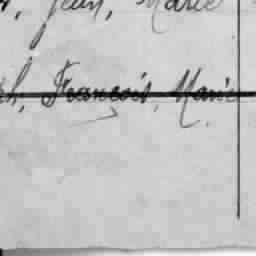 Jean, Marie
h, François, Marie